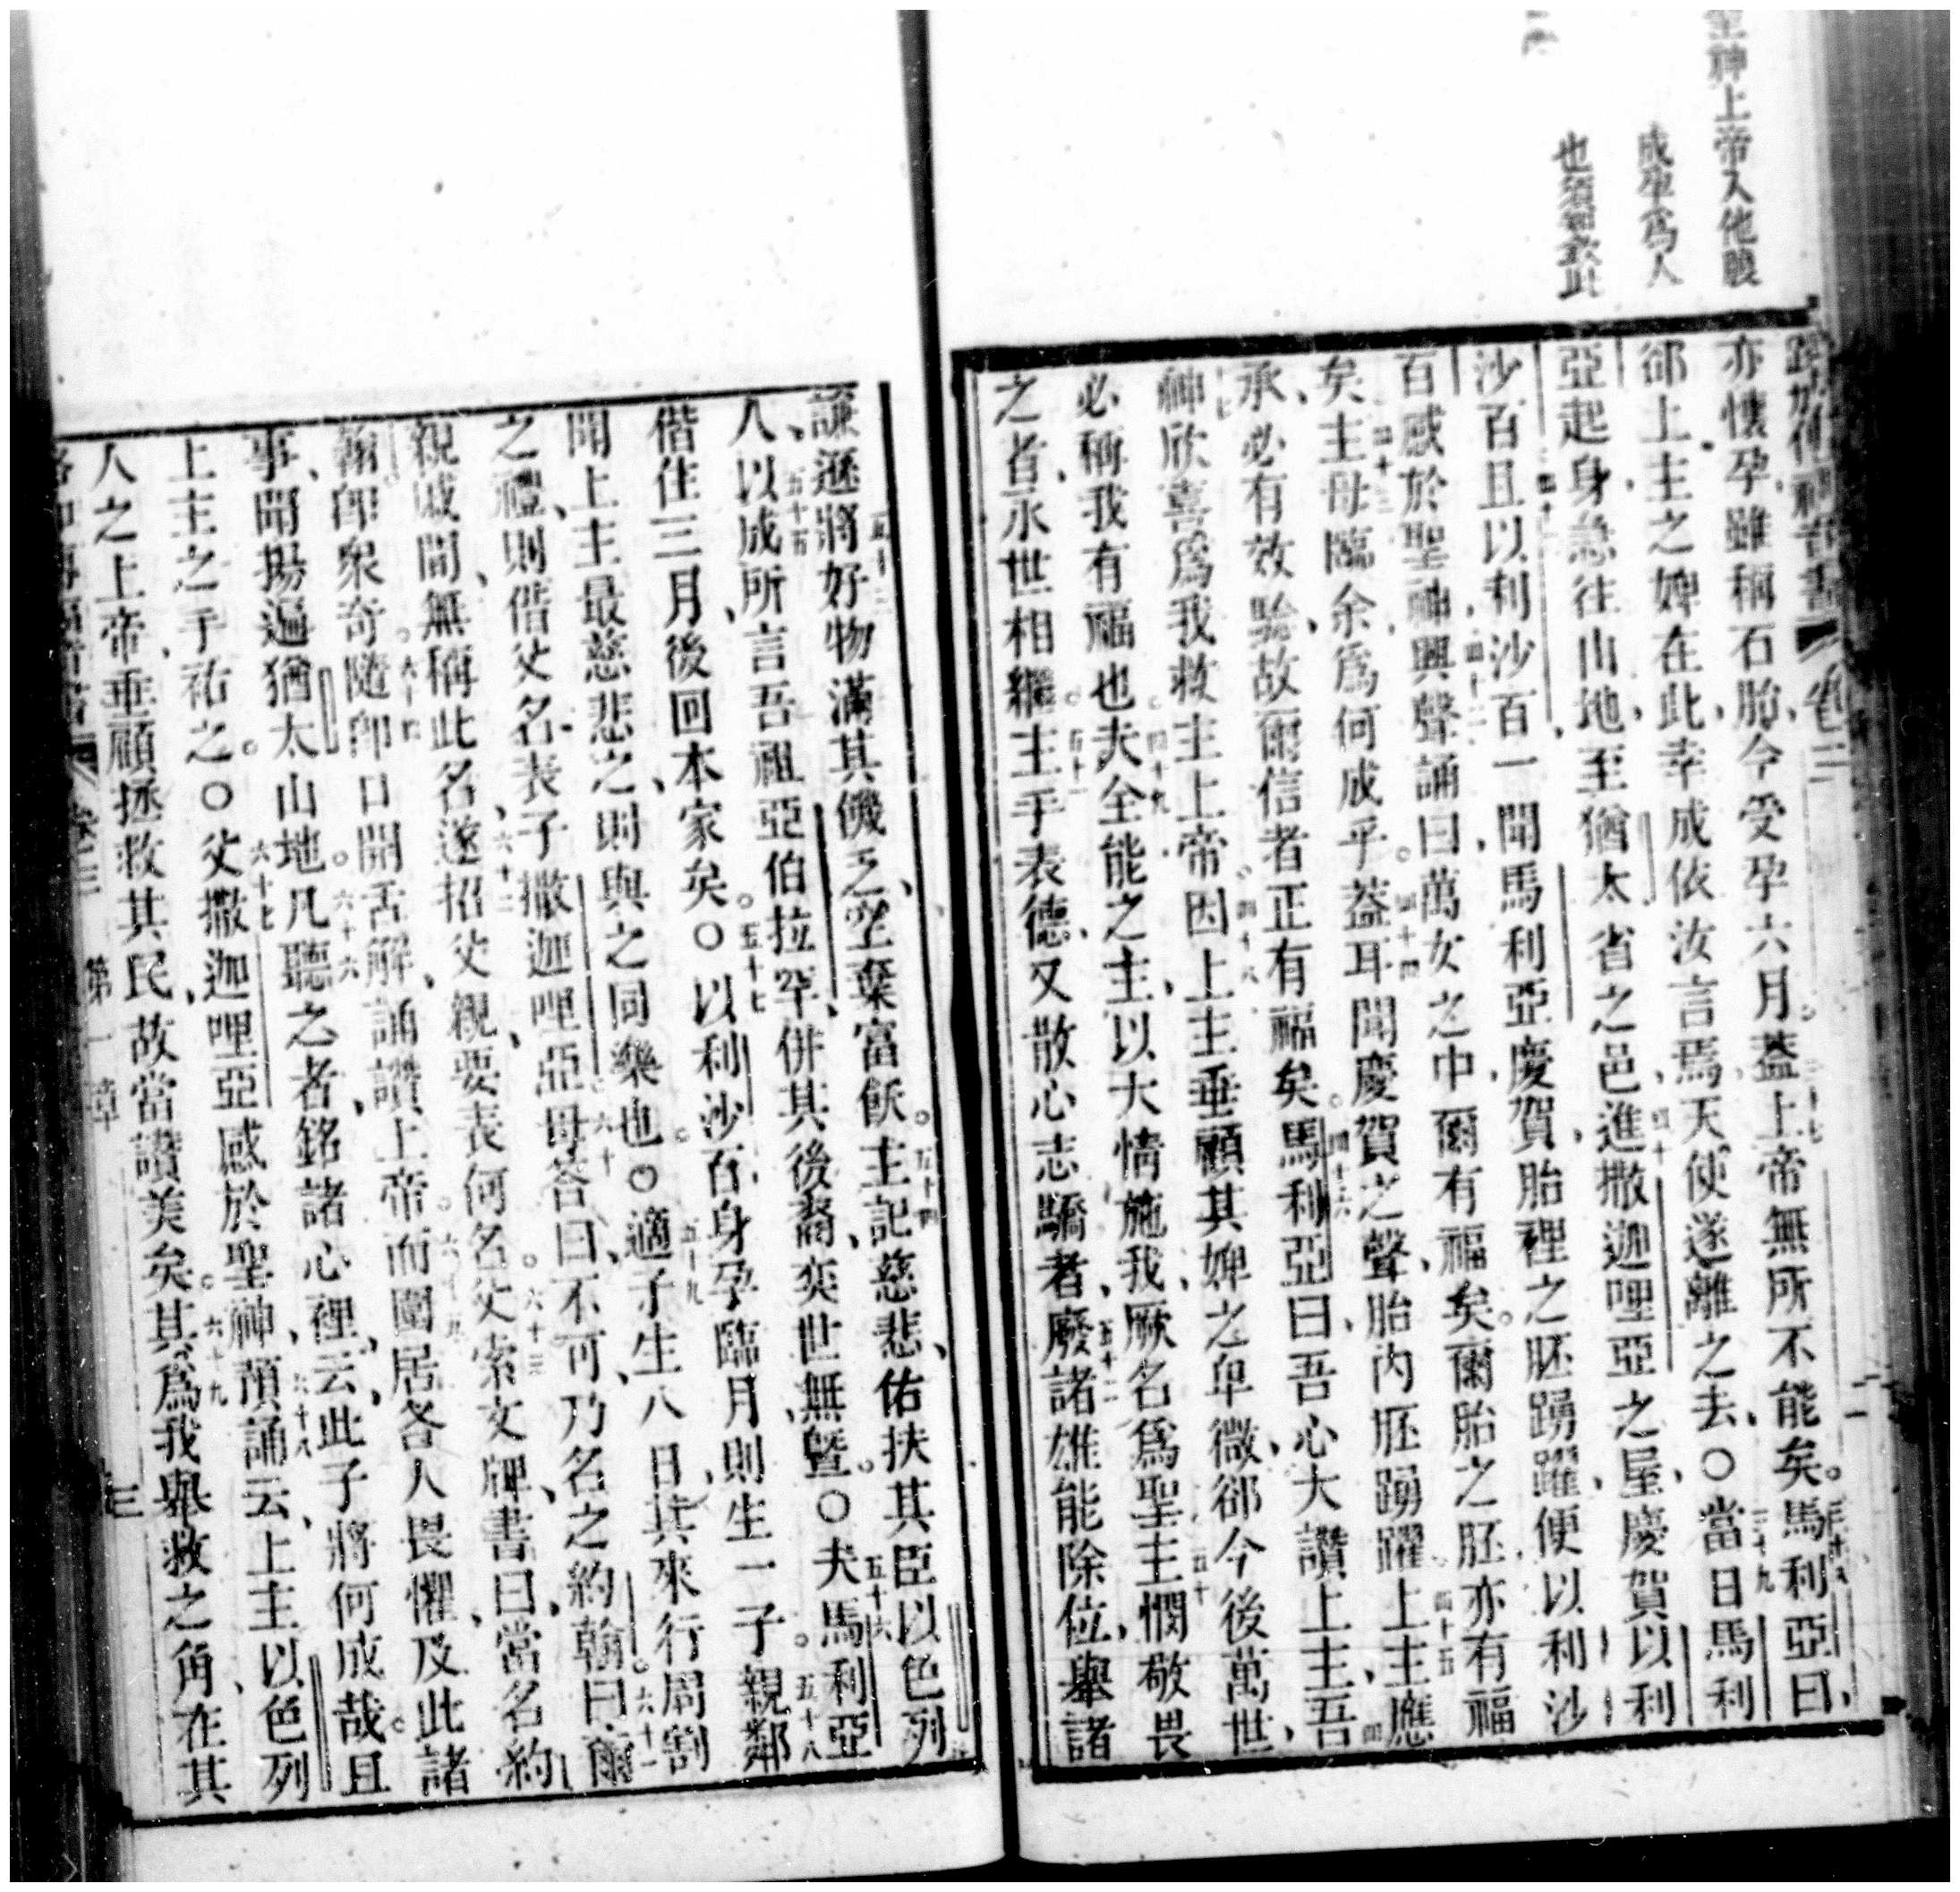 聖神上帝入他腹
成孕爲人
也須知敬此
亦懷孕雖稱石胎今受孕六月蓋上帝無所不能矣三十八馬利亞曰
郤上主之婢在此幸成依汝言焉天使遂離之去○三十九當日馬利
亞起身急往山地至猶太省之邑四十進撒迦哩亞之屋慶賀以利
沙百四十一且以利沙百一聞馬利亞慶賀胎裡之胚踴躍便以利沙
百感於聖神四十二興聲誦曰萬女之中爾有福矣爾胎之胚亦有福
矣四十三主母臨余爲何成乎四十四蓋耳聞慶賀之聲胎內胚踴躍四十五上主應
承必有效驗故爾信者正有福矣四十六馬利亞曰吾心大讚上主四十七吾
神欣喜爲我救主上帝四十八因上主垂顧其婢之卑微郤今後萬世
必稱我有福也四十九夫全能之主以大情施我厥名爲聖五十主憫敬畏
之者永世相繼五十一主手表德又散心志驕者五十二廢諸雄能除位舉諸
謙遜五十三將好物滿其饑乏空棄富飫五十四主記慈悲佑扶其臣以色列
人五十五以成所言吾祖亞伯拉罕併其後裔奕世無曁○五十六夫馬利亞
偕住三月後回本家矣○五十七以利沙百身孕臨月則生一子五十八親鄰
聞上主最慈悲之則與之同樂也○五十九適子生八日其來行周割
之禮則偕父名表子撒迦哩亞六十母答曰不可乃名之約翰六十一曰爾
親戚間無稱此名六十二遂招父親要表何名六十三父索文牌書曰當名約
翰卽衆奇六十四隨卽口開舌解誦讚上帝六十五而圍居各人畏懼及此諸
事聞揚遍猶太山地六十六凡聽之者銘諸心裡云此子將何成哉且
上主之手祐之○六十七父撒迦哩亞感於聖神預誦云六十八上主以色列
人之上帝垂顧拯救其民故當讚美矣六十九其爲我舉救之角在其
卷三 第一章 三